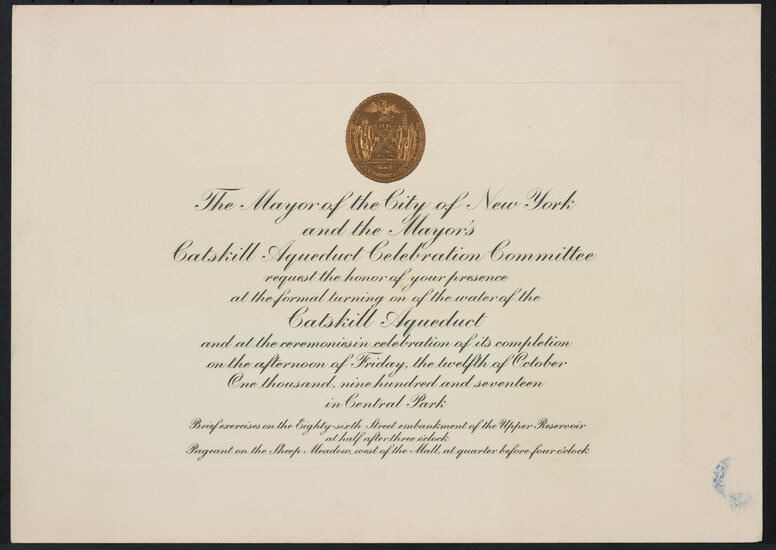 The Mayor of the City of New York
and the Mayor's
Catskill Aqueduct Celebration Committee
request the honor of your presence
at the formal turning on of the water of the
Catskill Aqueduct
and at the ceremonies in celebration of its completion
on the afternoon of Friday, the twelfth of October
One thousand, nine hundred and seventeen
in Central Park
Brief exercises on the Eighty-sixth Street embankment of the Upper Reservoir
at half after three o'clock
Pageant on the Sheep Meadow, west of the Mall, at quarter before four o'clock